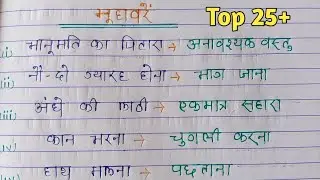 मुहावरें
Top 25+
(i) भानुमति का पितारा → अनावश्यक वस्तु
(ii) नौ-दो ग्यारह होना → भाग जाना
(iii) अंधे की लाठी → एकमात्र सहारा
(iv) कान भरना → चुगली करना
हाथ मलना → पछताना